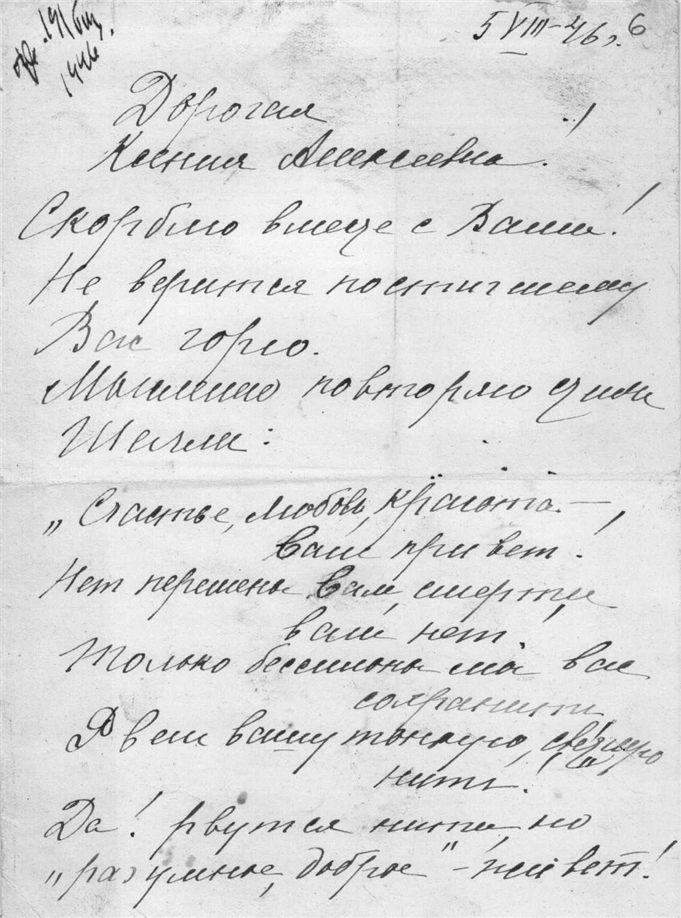 5 VIII-46 г. 6
1946.
Дорогая
Ксения Алексеевна!
Скорблю вместе с Вами!
Не верится постигшему
Вас горю.
Мысленно повторяю
Шелли:
„Счастье, любовь, красота —
вам привет!
Нет перемены вам, смерти
вам нет!
Только бессильны мы вас
сохранить
Рвем вашу тонкую,
нить!
Да! рвутся нити, но
„разумное, доброе" — живет!